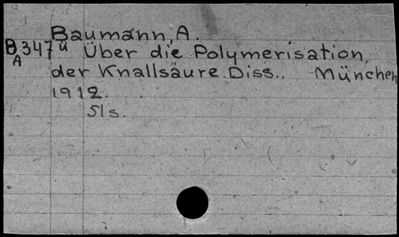 Baumann, A.
B347ü Über die Polymerisation
A
der Knallsäure. Diss.. München
1912.
51s.